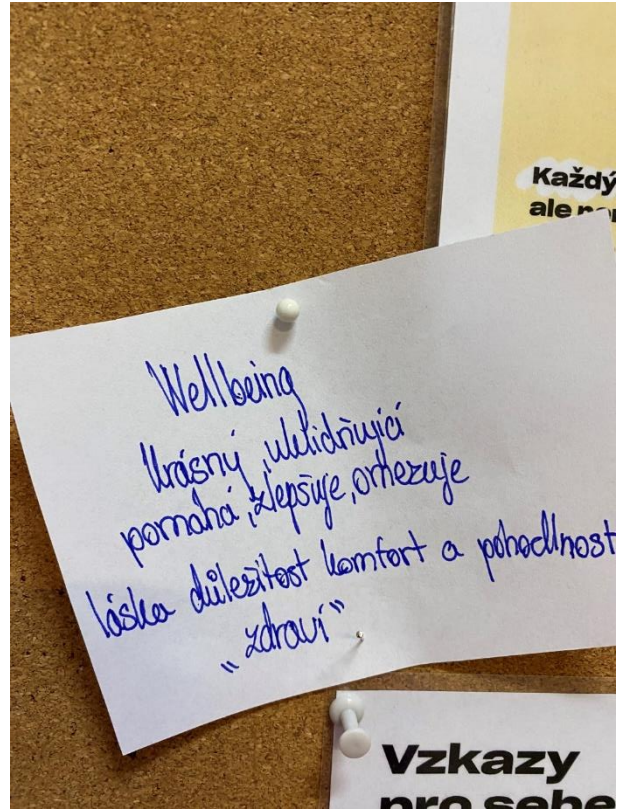 Každý
ale
Wellbeing
krásný, uklidňující
pomáhá, zlepšuje, omezuje
láska důležitost komfort a pohodlnost
"zdraví"
Vzkazy
pro sebe